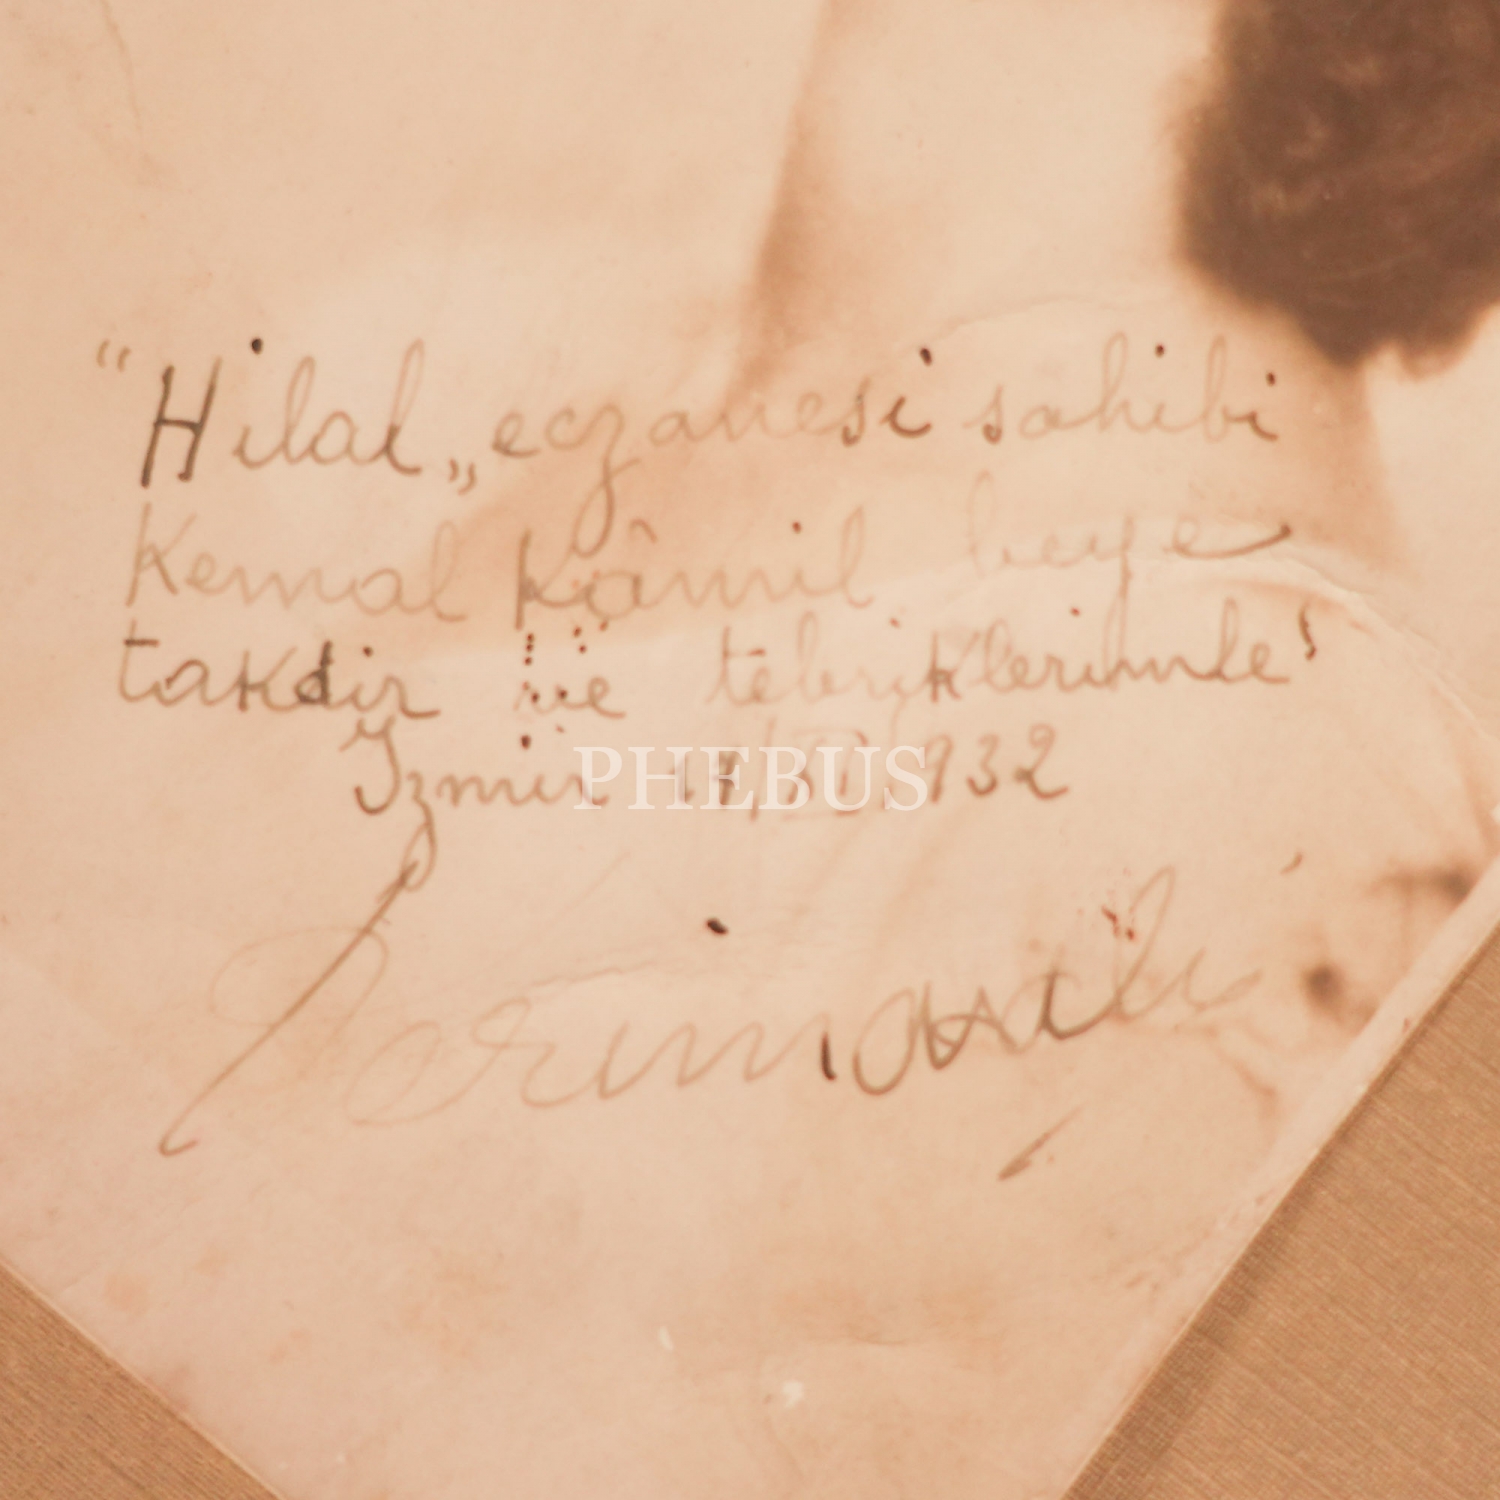 "Hilal„ eczanesi sahibi
Kemal Kâmil beye
takdir ve tebriklerimle!
Izmir 17/XI/932
PHEBUS